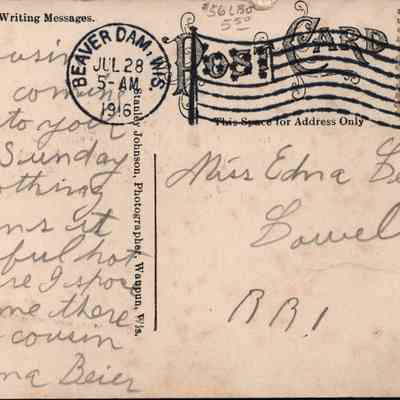 Writing Messages.
$56 LBO
5 50
POST CARD
BEAVER DAM, WIS
JUL 28
5- AM
1916
This Space for Address Only
Stanley Johnson, Photographer, Waupun, Wis.
ousin
comin
to you
Sunday
othing
ens it
ful hot
re I spo
me there
cousin
na Beier
Miss Edna
Lowel
R R. 1